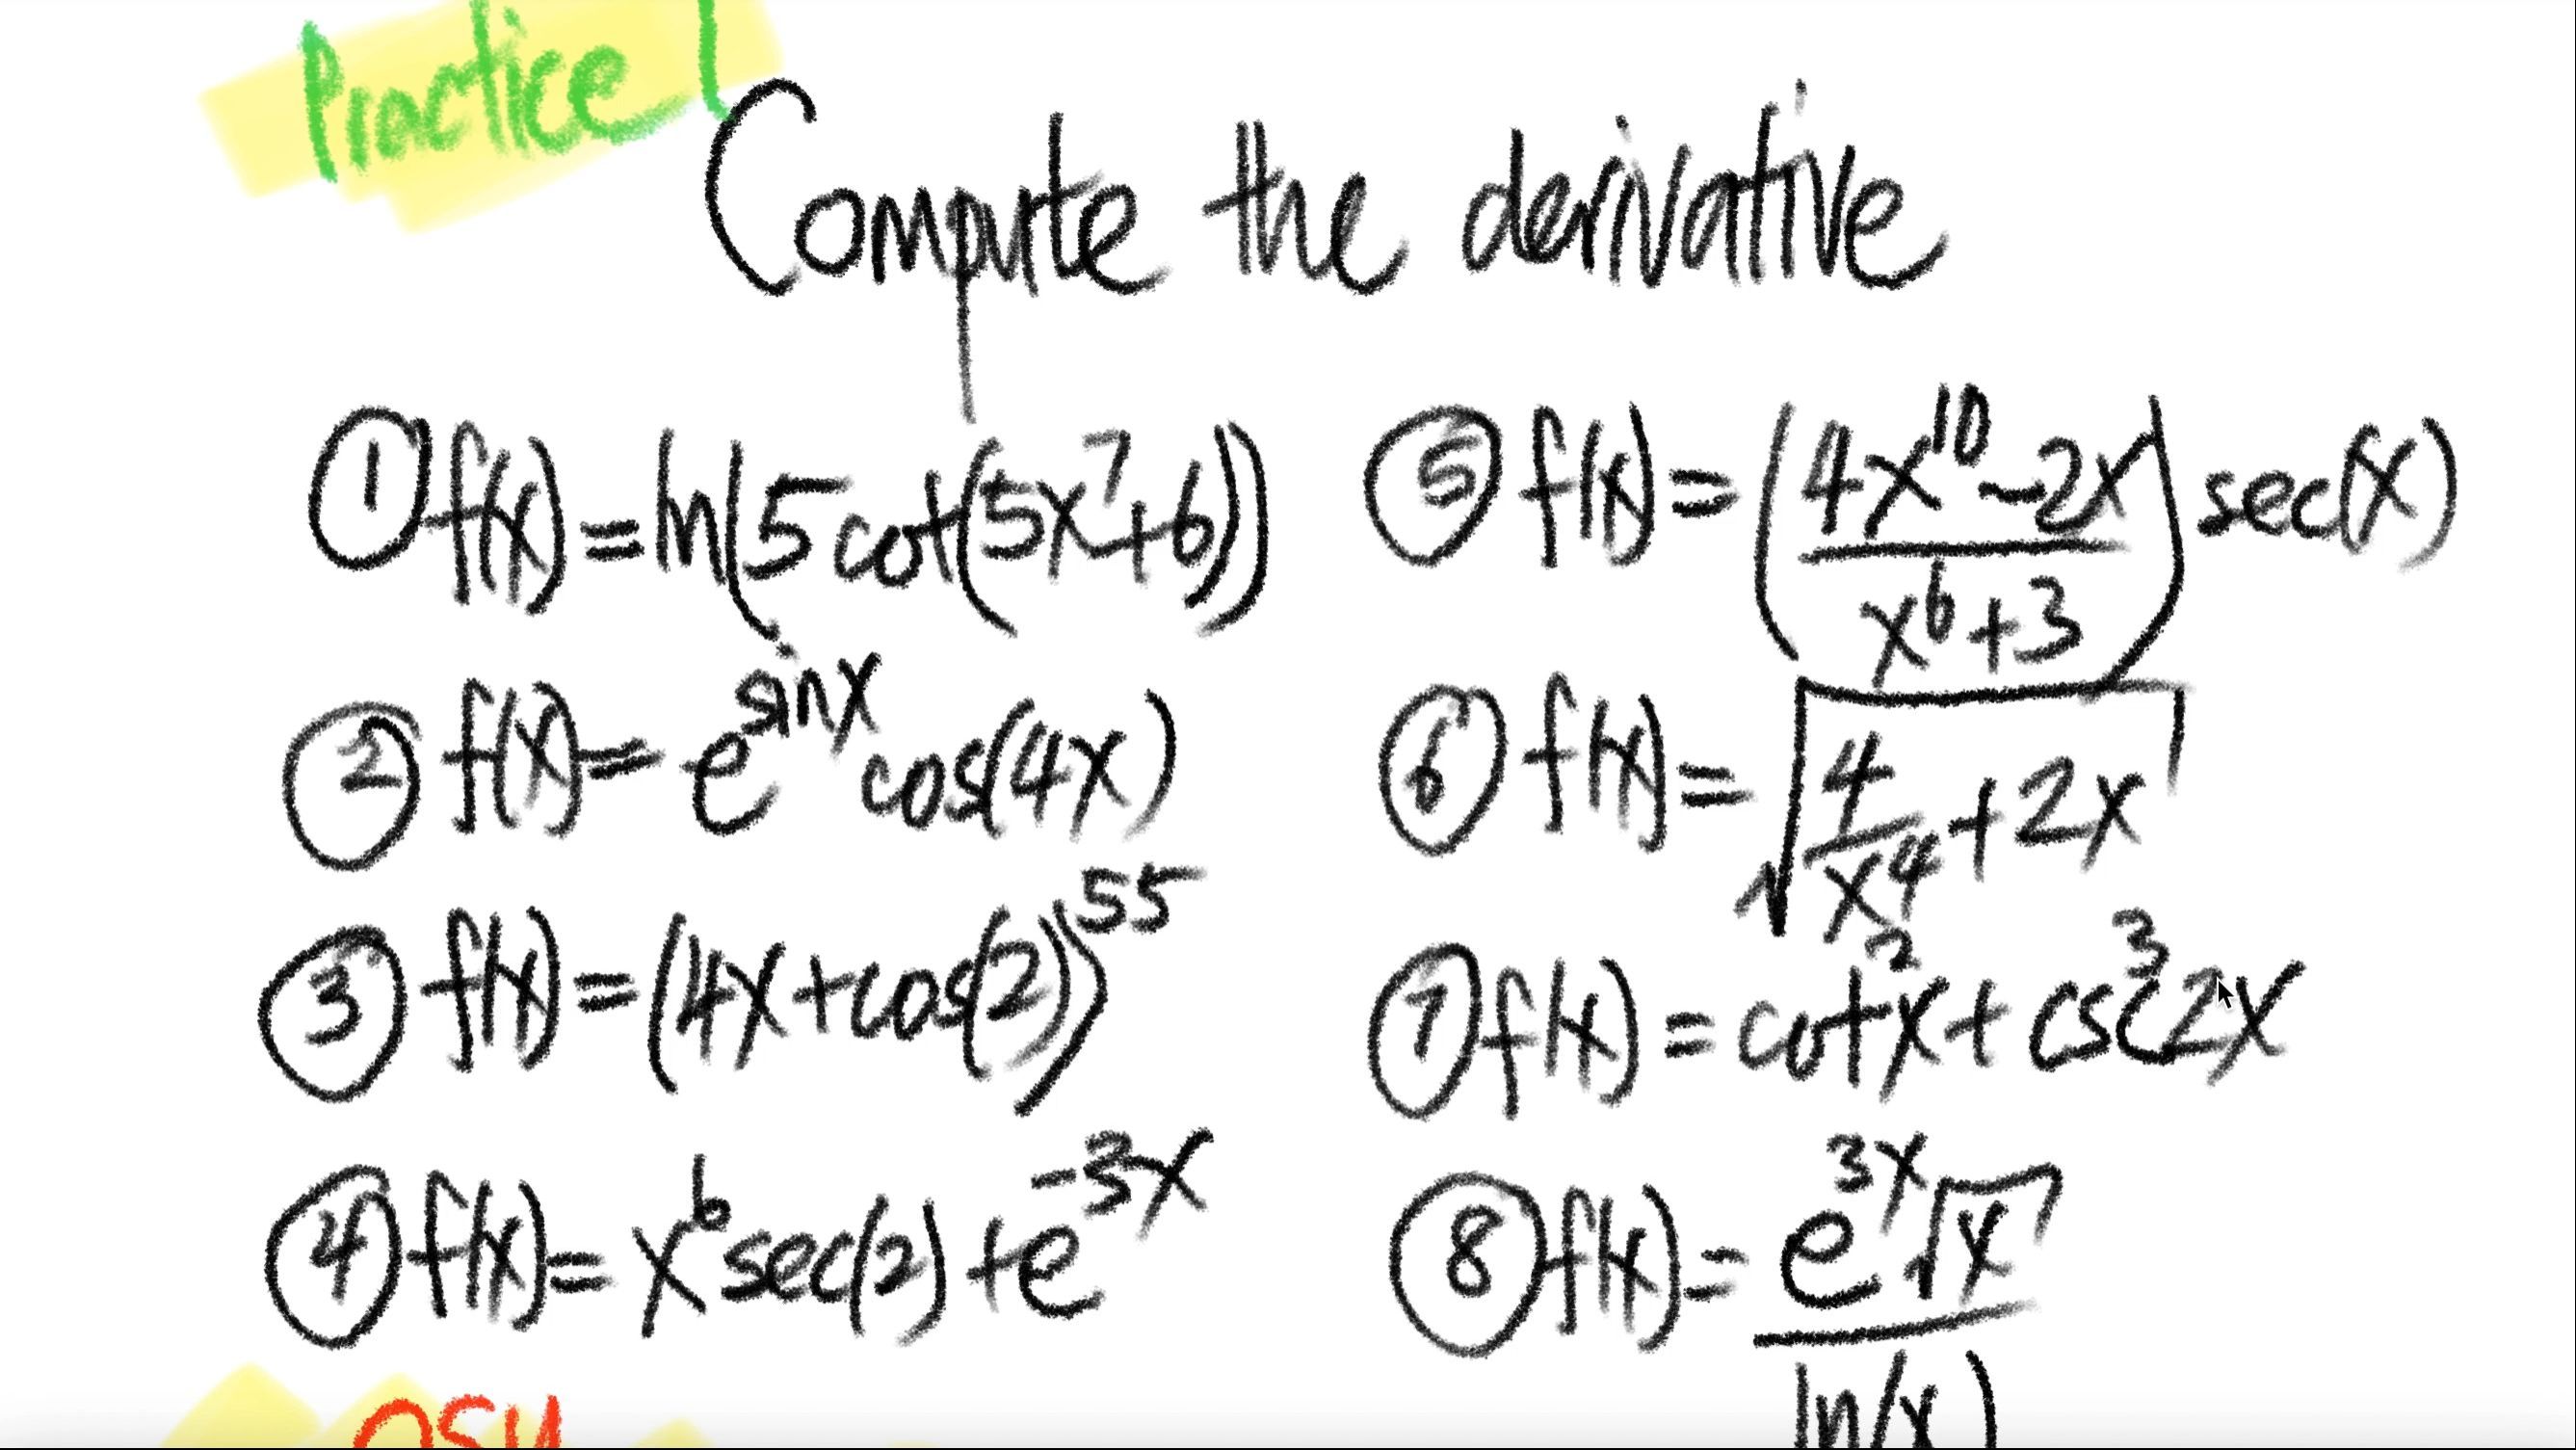 Practice!
Compute the derivative
① f(x) = ln(5 cot(5x⁷+6))
② f(x) = e^{sinx} cos(4x)
③ f(x) = (4x+cos(2))⁵⁵
④ f(x) = x⁶ sec(2) + e^{-3x}
⑤ f(x) = ((4x¹⁰-2x)/(x⁶+3)) sec(x)
⑥ f(x) = √(4/x⁴ + 2x)
⑦ f(x) = cot²x + csc³2x
⑧ f(x) = (e^{3x}√x)/ln(x)